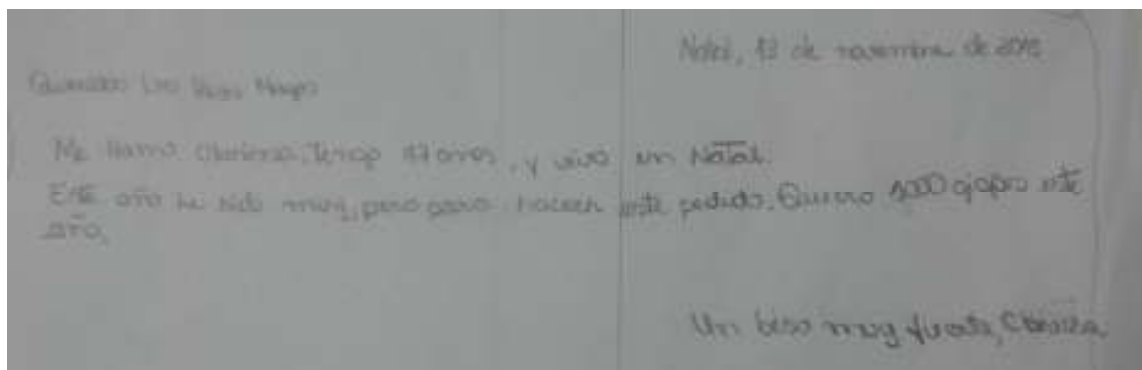 Natal, 13 de novembro de
Queridos Los Reyes Magos
Me llamo tengo 17 anos, y vivo en Natal.
Este año he sido muy, pero para hacer este pedido. Quiero 1000 este
año,
Un beso muy fuerte,